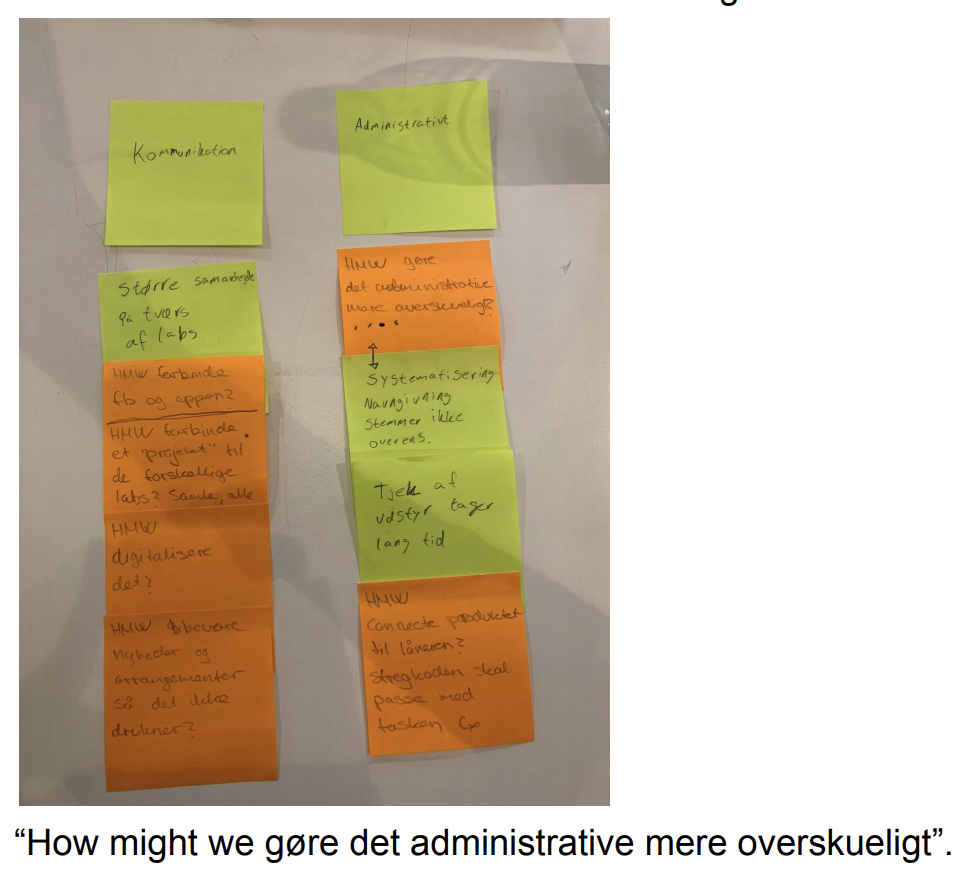 Kommunikation
Større samarbejde
på tværs
af labs
HMW forbinde
fb og appen?
HMW forbinde
et "projekt" til
de forskellige
labs? Samle alle
HMW
digitalisere
det?
HMW bevare
nyheder og
arrangementer
så det ikke
drukner?
Administrativt
HMW gøre
det administrative
mere overskueligt?
Systematisering
Navngivning
stemmer ikke
overens.
Tjek af
udstyr tager
lang tid
HMW
connecte produktet
til låneren?
stregkoden skal
passe med
tasken
“How might we gøre det administrative mere overskueligt”.